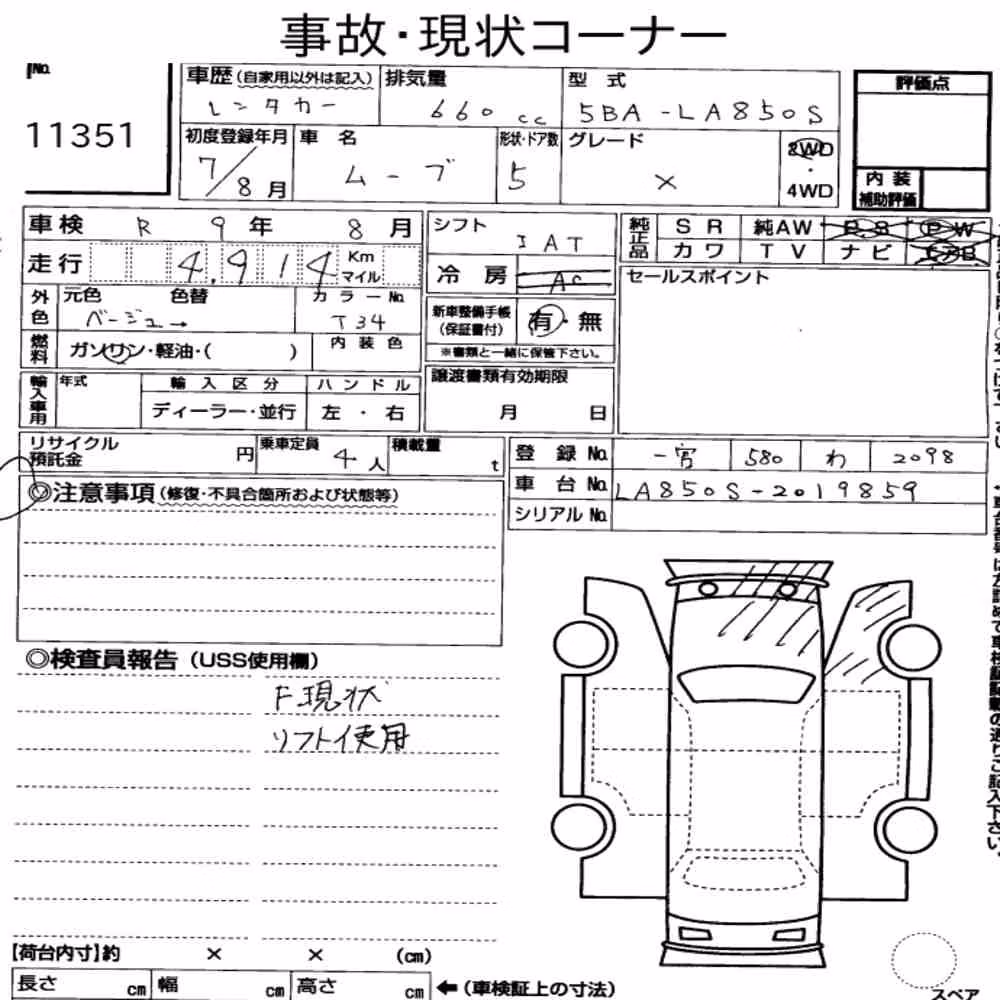 事故・現状コーナー
No. 11351
車歴(自家用以外は記入) レンタカー
排気量 660cc
型式 5BA-LA850S
評価点
初度登録年月 7/8月
車名 ムーブ
形状・ドア数 5
グレード X
2WD・4WD
内装補助評価
車検 R 9年 8月
シフト IAT
純正品 SR 純AW P.S P.W
カワ TV ナビ エアB
走行 4,914 Km マイル
冷房 AC
セールスポイント
外色 元色 色替 ベージュ→
カラーNo. T34
新車整備手帳(保証書付) 有・無
※書類と一緒に保管下さい。
燃料 ガソリン・軽油・( )
内装色
輸入車用 年式
輸入区分 ディーラー・並行
ハンドル 左・右
譲渡書類有効期限 月 日
リサイクル預託金 円
乗車定員 4人
積載量 t
登録No. 一宮 580 わ 2098
車台No. LA850S-2019859
シリアルNo.
◎注意事項(修復・不具合箇所および状態等)
◎検査員報告(USS使用欄)
F現状
リフト使用
【荷台内寸】約 × × (cm)
長さ cm 幅 cm 高さ cm ←(車検証上の寸法)
スペア